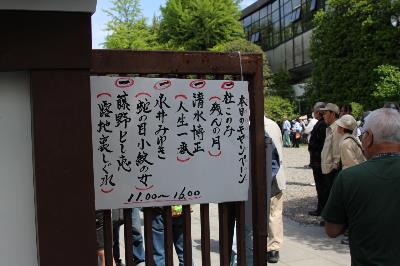 本日のキャンペーン
杜このみ
(残んの月)
清水博正
(人生一番)
水井みゆき
(蛇の目小紋の女)
藤野とし恵
(路地裏しぐれ)
11.00〜16.00